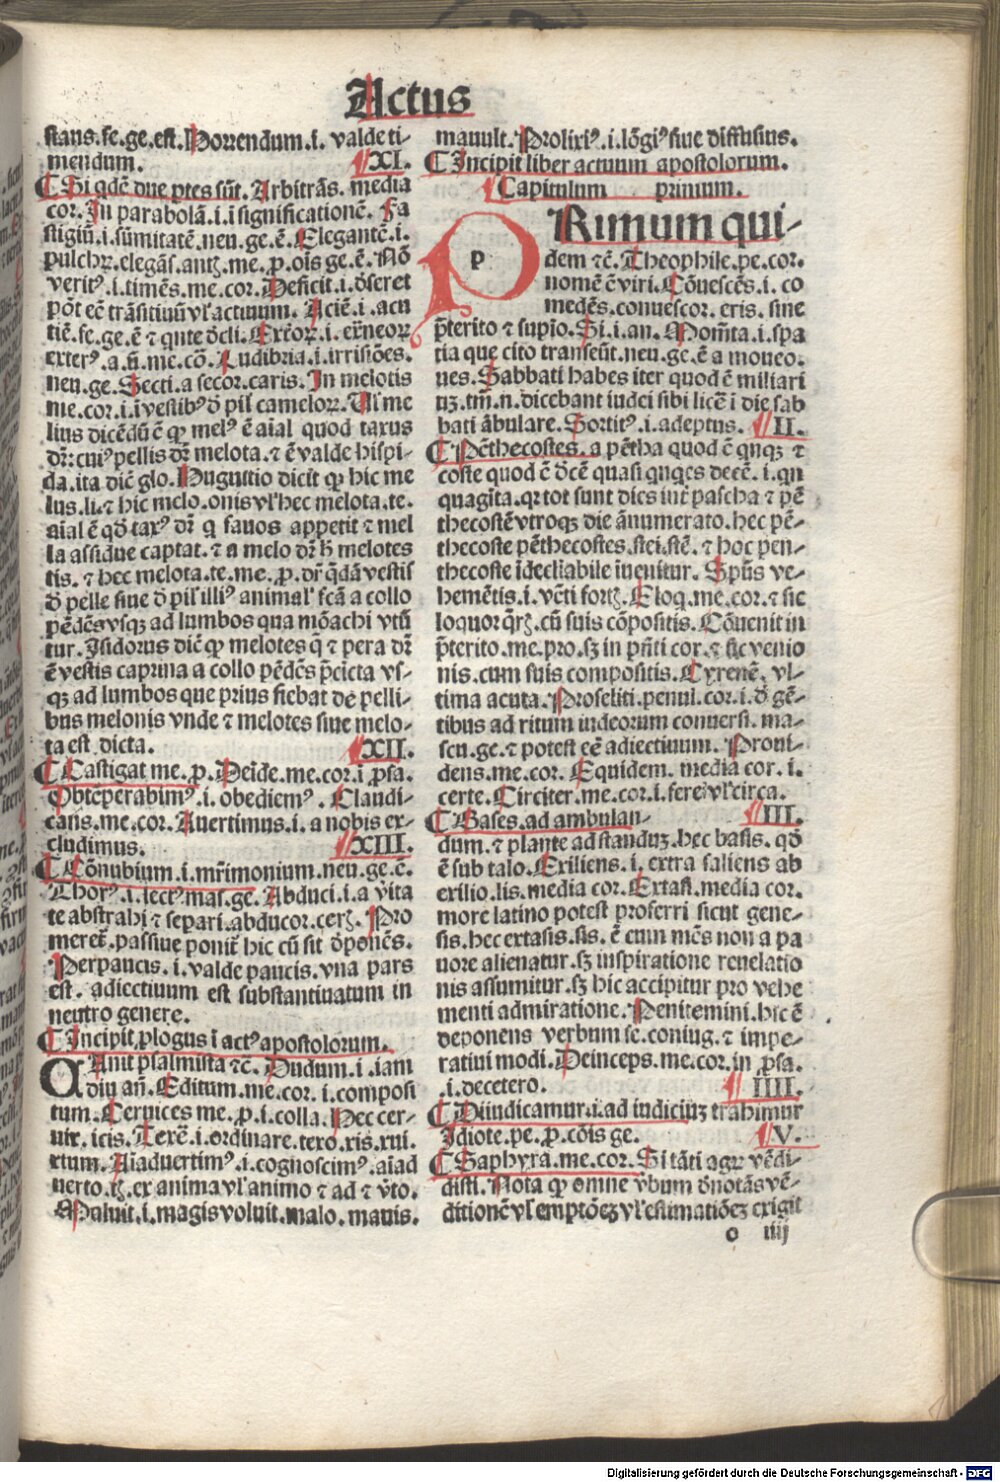 Actus
stans.se.ge.est.Horrendum.i. valde ti-
mendum. XI.
Si qdē due ptes sūt. Arbitrās. media
cor. In parabolā.i.ī significationē. Fa
stigiū.i.sūmitatē.neu.ge.ē. Elegantē.i.
pulchꝝ.elegās.antꝫ.me.p.oīs ge.ē. Nō
veritꝰ.i.timēs.me.cor. Deficit.i.dseret
pōt eē trāsitiuū vl' actiuum. Aciē.i.acu
tiē.se.ge.ē ⁊ qnte dcli. Extoꝝ.i.exneoꝝ
exterꝰ.a.ū.me.cō. Ludibria.i.irrisiōes.
neu.ge. Secti.a secor.caris. In melotis
me.cor.i.ī vestibꝰ d̄ pil' cameloꝝ. Vl' me
lius dicēdū ē ꝙ melꝰ ē aīal quod taxus
dr̄: cuiꝰ pellis dr̄ melota.⁊ ē valde hispi-
da.ita dic̄ glo. Hugutio dicit ꝙ hic me
lus.li.⁊ hic melo.onis vl' hec melota.te.
aīal ē qd̄ taxꝰ dr̄ q fauos appetit ⁊ mel
la assidue captat.⁊ a melo dr̄ h̄ melotes
tis.⁊ hec melota.te.me.p.dr̄ qdā vestis
d̄ pelle siue d̄ pil' illiꝰ animal' fcā a collo
pēdēs vsqꝫ ad lumbos qua mōachi vtū
tur. Isidorus dic̄ ꝙ melotes q̄ ⁊ pera dr̄
ē vestis caprina a collo pēdēs p̄cicta vs-
qꝫ ad lumbos que prius fiebat de pelli-
bus melonis vnde ⁊ melotes siue melo-
ta est dicta. XII.
Castigat me.p. Deīde.me.cor.i ꝓsa.
Obtēperabimꝰ.i.obediemꝰ. Claudi-
catis.me.cor. Auertimus.i.a nobis ex-
cludimus. XIII.
Cōnubium.i.mr̄imonium.neu.ge.ē.
Thorꝰ.i.lectꝰ.mas.ge. Abduci.i.a vita
te abstrahi ⁊ separi.abducor.cerꝫ. Pro
meret̄.passiue ponit̄ hic cū sit dponēs.
Perpaucis.i.valde paucis.vna pars
est. adiectiuum est substantiuatum in
neutro genere.
Incipit ꝓlogus ī actꝰ apostolorum.
CAnit psalmista ⁊c̄. Dudum.i.iam
diu an̄. Editum.me.cor.i.composi
tum. Ceruices me.p.i.colla. Hec cer-
uix.icis. Texē.i.ordinare.texo.xis.xui.
xtum. Aīaduertimꝰ.i.cognoscimꝰ.aīad
uerto.tꝫ.ex anima vl' animo ⁊ ad ⁊ v̄to.
Maluit.i.magis voluit.malo.mauis.
mauult. Prolixiꝰ.i.lōgiꝰ siue diffusius.
Incipit liber actuum apostolorum.
Capitulum primum.
PRimum qui-
dem ⁊c̄. Theophile.pe.cor.
nomē ē viri. Cōuescēs.i.co
medēs.conuescor.eris. sine
p̄terito ⁊ supīo. Si.i.an. Momēta.i.spa
tia que cito transeūt.neu.ge.ē a moueo.
ues. Sabbati habes iter quod ē miliari
uꝫ.tm̄.n.dicebant iudei sibi licē ī die sab
bati ābulare. Sortitꝰ.i.adeptus. II.
Pēthecostes.a pētha quod ē qnqꝫ ⁊
coste quod ē dcē quasi qnqꝫ decē.i.qn
quagīta.qr tot sunt dies int̄ pascha ⁊ pē
thecostē vtroqꝫ die ānumerato.hec pē-
thecoste pēthecostes.stei.stē.⁊ hoc pen-
thecoste īdecliabile īuenitur. Spūs ve-
hemētis.i.vēti fortꝫ. Eloq.me.cor.⁊ sic
loquor q̄rꝫ.cū suis cōpositis. Cōuenit in
p̄terito.me.pro.sꝫ in pn̄ti cor.⁊ sic venio
nis.cum suis compositis. Cyrenē. vl-
tima acuta. Proseliti.penul.cor.i.d̄ gē-
tibus ad ritum iudeorum conuersi.ma-
scu.ge.⁊ potest eē adiectiuum. Proui-
dens.me.cor. Equidem. media cor.i.
certe. Circiter.me.cor.i.fere vl' circa.
III.
Bases.ad ambulan-
dum.⁊ plante ad standuꝫ.hec basis. qd̄
ē sub talo. Exiliens.i.extra saliens ab
exilio.lis.media cor. Extasi.media cor.
more latino potest proferri sicut gene-
sis.hec extasis.sis. ē cum mēs non a pa
uore alienatur.sꝫ inspiratione reuelatio
nis assumitur.sꝫ hic accipitur pro vehe
menti admiratione. Penitemini.hic ē
deponens verbum sc.coniug.⁊ impe-
ratiui modi. Deinceps.me.cor.in ꝓsa.
.i.decetero. IIII.
Diiudicamur.i.ad iudiciuꝫ trahimur
Idiote.pe.p.cōis ge. V.
Saphyra.me.cor. Si tāti agꝝ vēdi-
disti. Nota ꝙ omne v̄bum dnotās vē-
ditionē vl' emptōeꝫ vl' estimatiōeꝫ exigit
o iiij
Digitalisierung gefördert durch die Deutsche Forschungsgemeinschaft - DFG